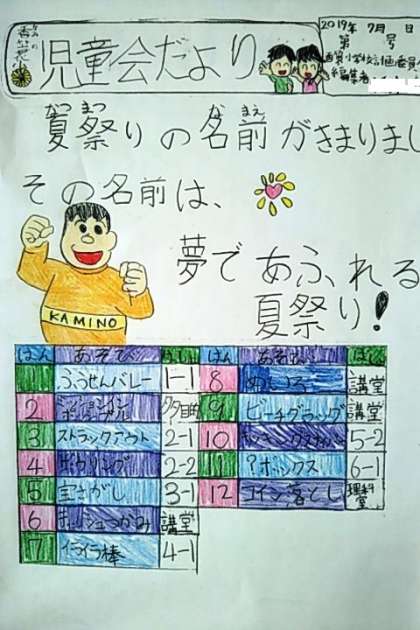 児童会だより
2019年 7月 日
第 号
夏祭りの名前がきまりまし
その名前は、
夢であふれる
夏祭り!
KAMINO
はん あそび ばしょ はん あそび ばしょ
1 ふうせんバレー 1-1
2 多目的
3 ストラックアウト 2-1
4 ボウリング 2-2
5 宝さがし 3-1
6 講堂
7 イライラ棒 4-1
8 めいろ 講堂
9 ビーチフラッグ 講堂
10 5-2
11 ?ボックス 6-1
12 コイン落とし 理科室